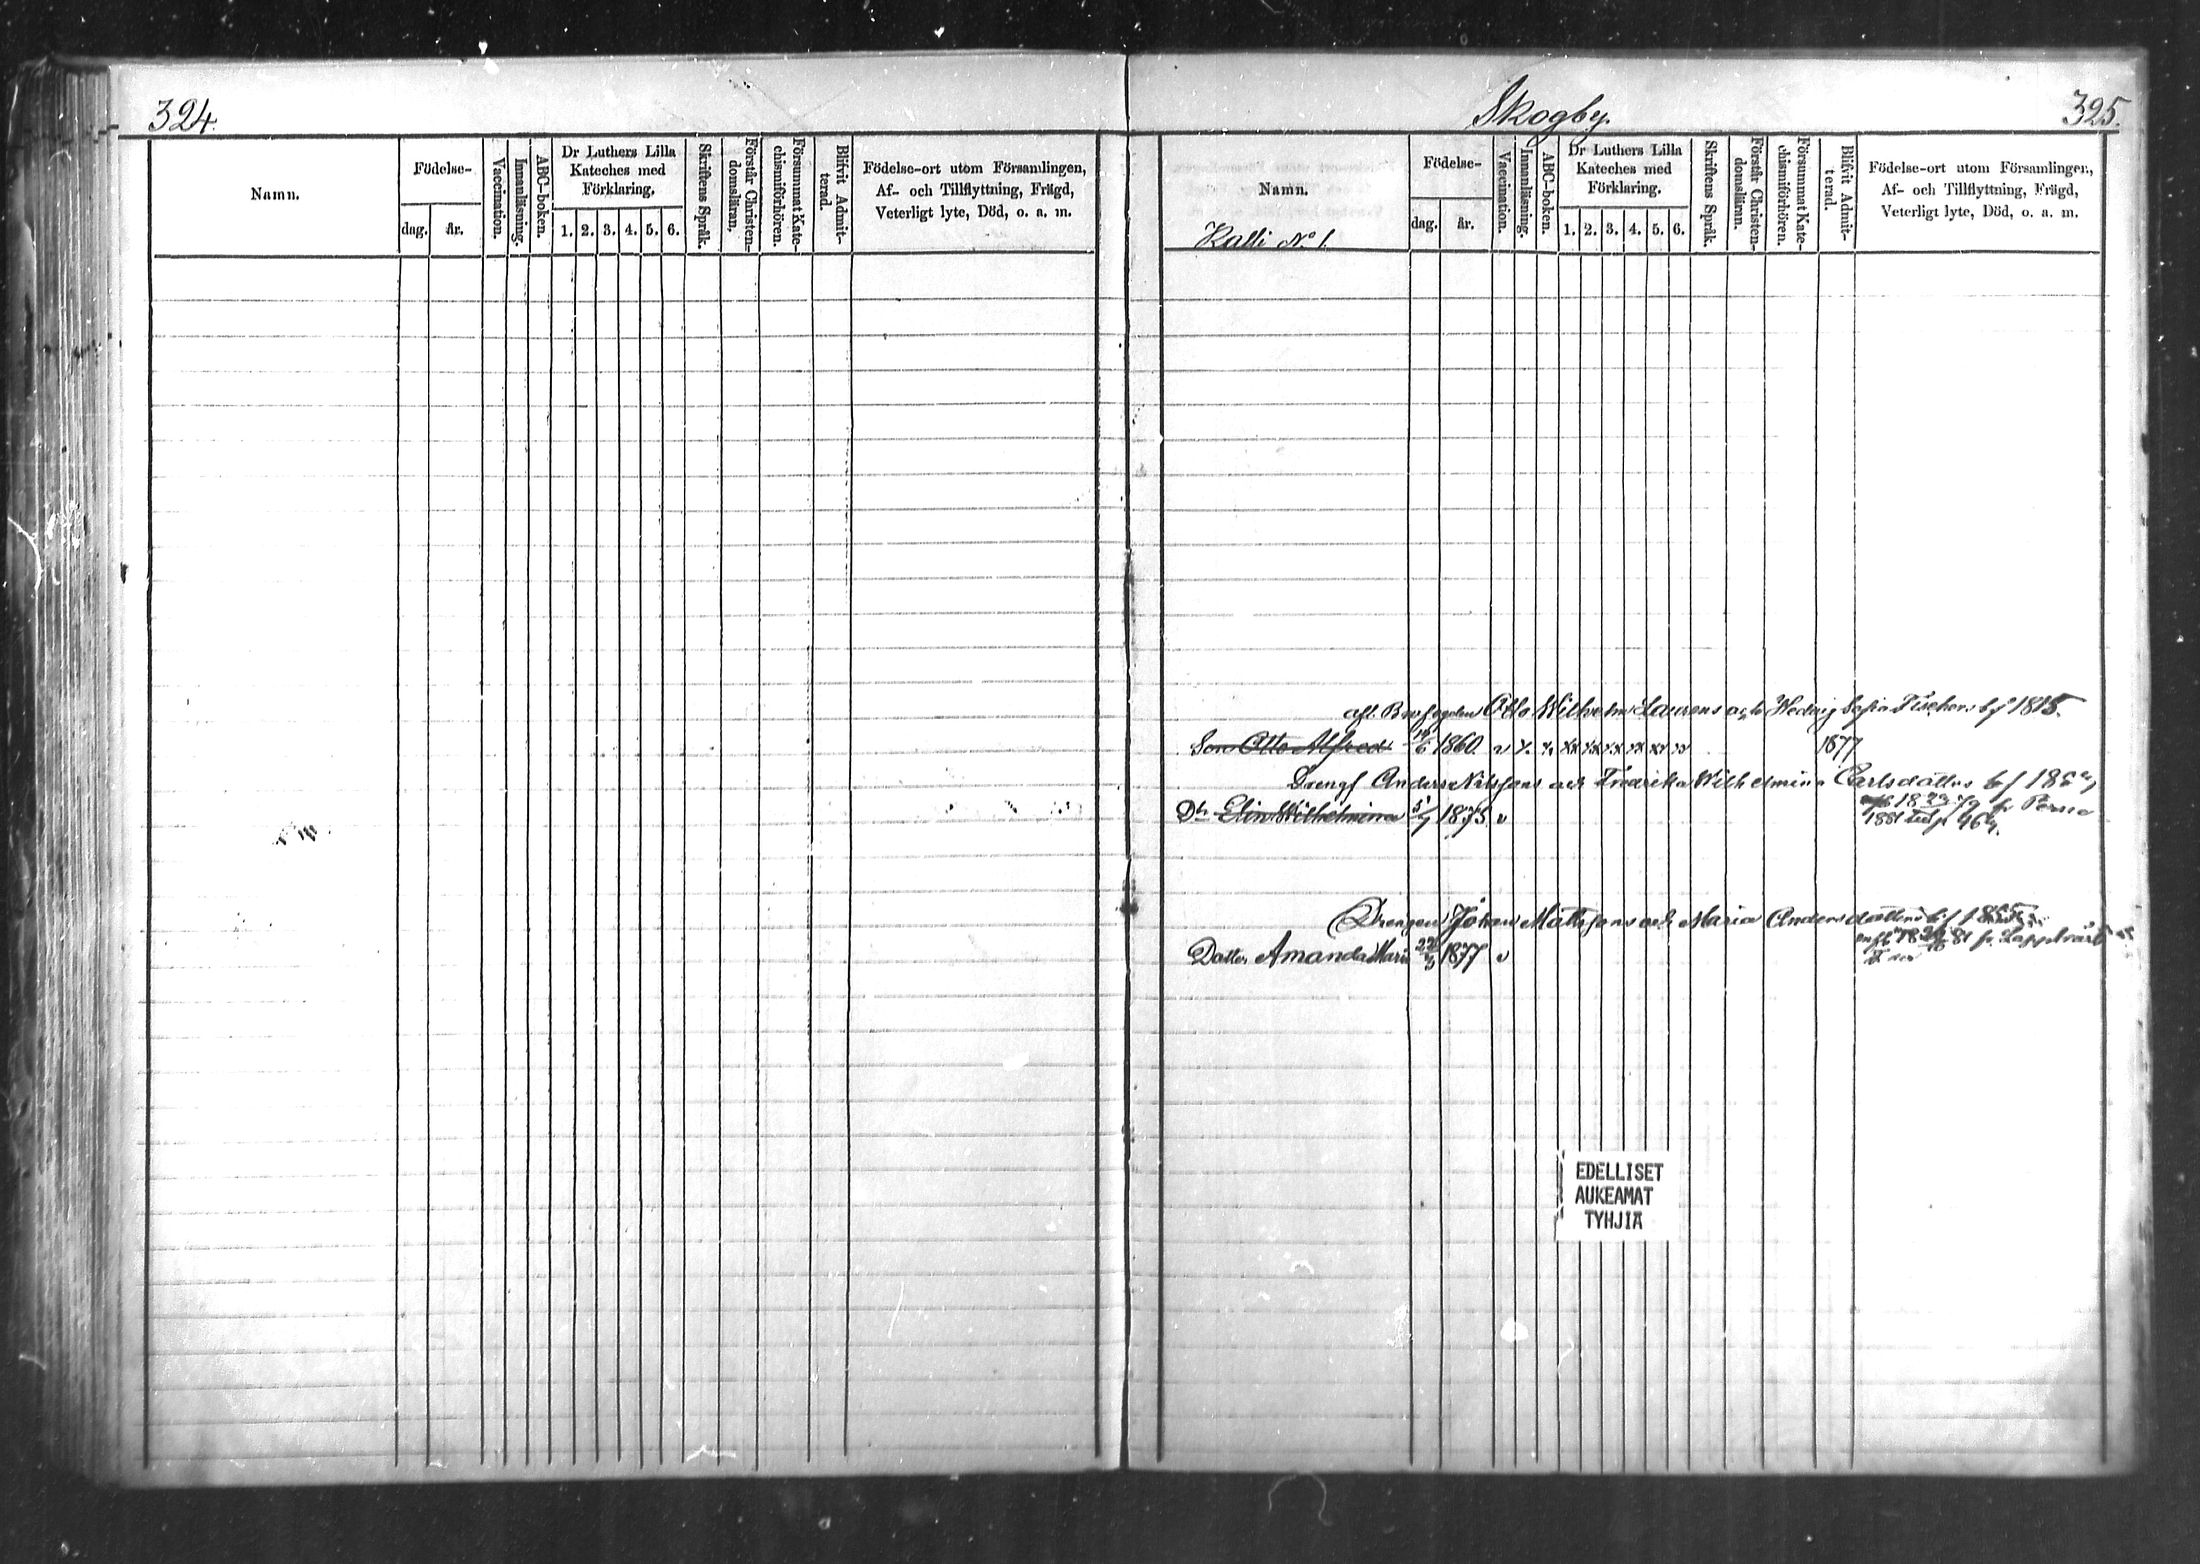 324.
Namn.
Födelse-
dag.
år.
Vaccination.
Innanläsning.
ABC-boken.
Dr Luthers Lilla
Kateches med
Förklaring.
1. 2. 3. 4. 5. 6.
Skriftens Språk.
Förstår Christen-
domsläran.
Försummat Kate-
chismiförhören.
Blifvit Admit-
terad.
Födelse-ort utom Församlingen,
Af- och Tillflyttning, Frägd,
Veterligt lyte, Död, o. a. m.
Skogby.
325.
Namn.
Kalli No 1.
Födelse-
dag.
år.
Vaccination.
Innanläsning.
ABC-boken.
Dr Luthers Lilla
Kateches med
Förklaring.
1. 2. 3. 4. 5. 6.
Skriftens Språk.
Förstår Christen-
domsläran.
Försummat Kate-
chismiförhören.
Blifvit Admit-
terad.
Födelse-ort utom Församlingen,
Af- och Tillflyttning, Frägd,
Veterligt lyte, Död, o. a. m.
Otto Wilhelm Laurens och Hedvig Sofia Fischers bf 1815.
Son Otto Alfred 1860. v 1877
Drengf Anders Nilssons och Fredrika Wilhelmina Carlsdotters bf
Dr Elin Wilhelmina 5/7 1875 v
1881
Drengen Johan Mattssons och Maria Andersdotters bf
Dotter Amanda Maria 1877 v
EDELLISET
AUKEAMAT
TYHJIÄ